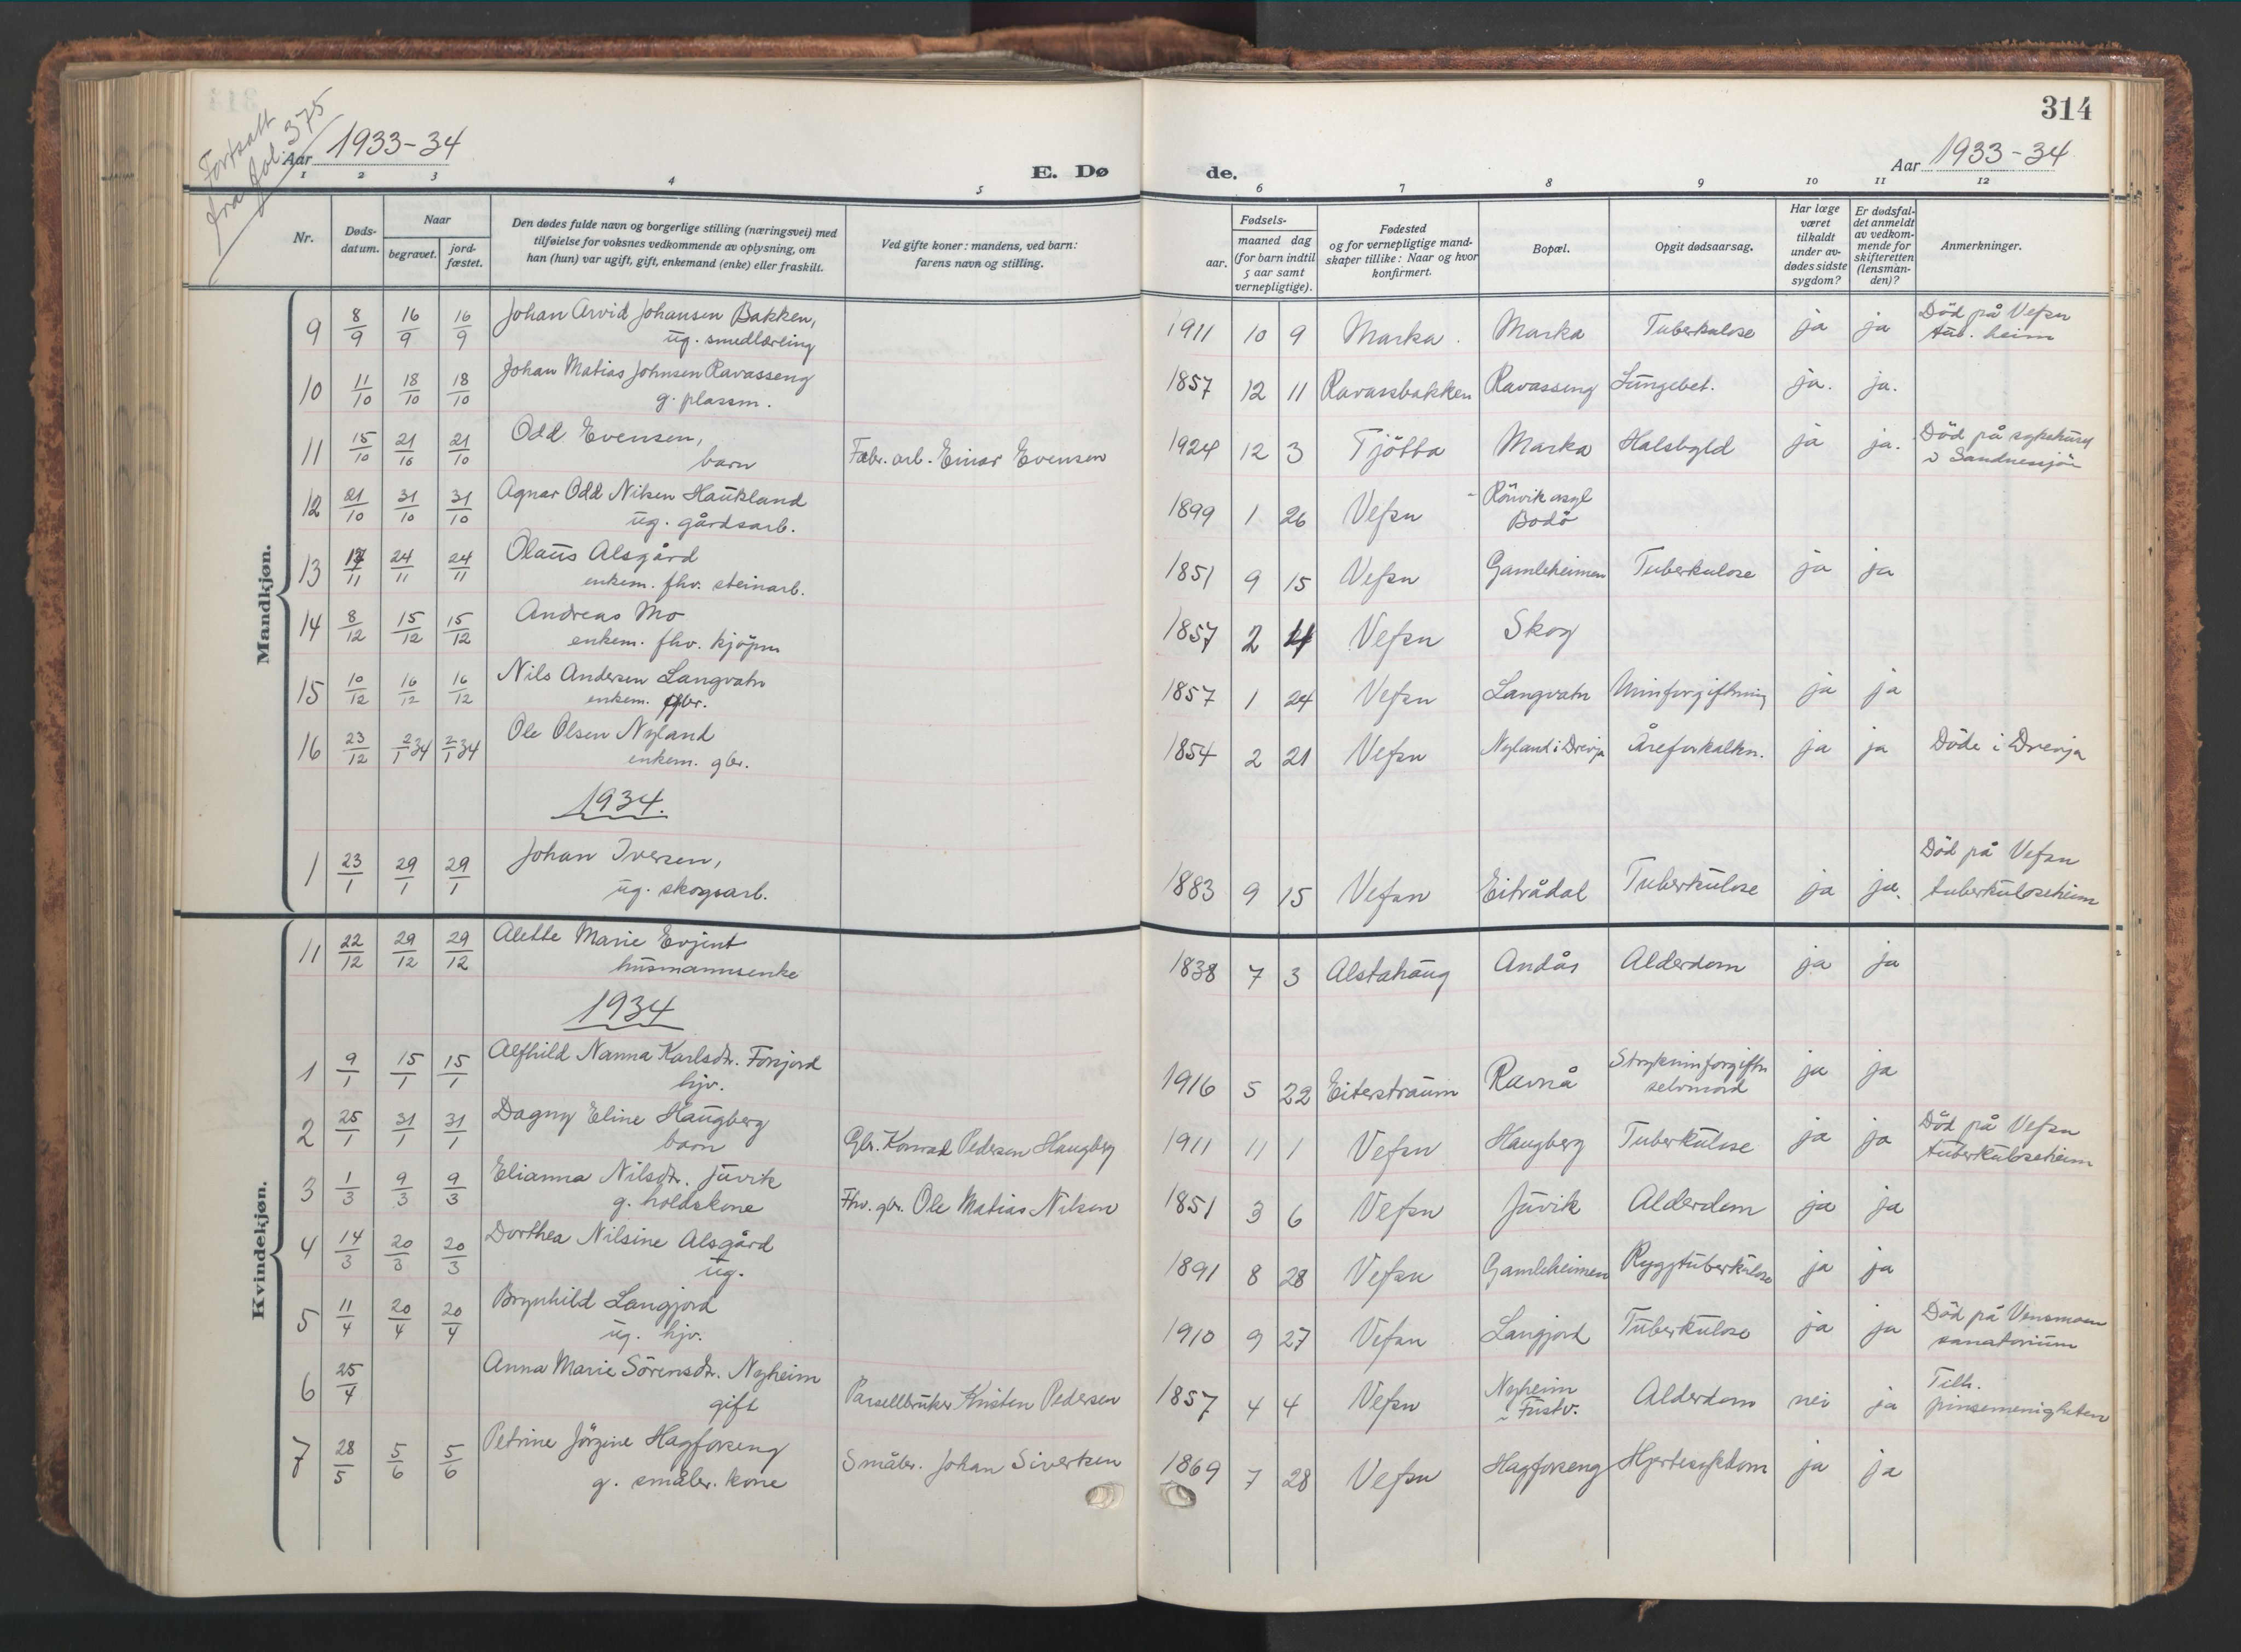 314
Fortsatt
fra fol. 375
Aar 1933-34
E. Dø
de.
Aar 1933-34
1 2 3 4 5 6 7 8 9 10 11 12
Nr.
Døds-
datum.
Naar
begravet.
jord-
fæstet.
Den dødes fulde navn og borgerlige stilling (næringsvei) med
tilføielse for voksnes vedkommende av oplysning, om
han (hun) var ugift, gift, enkemand (enke) eller fraskilt.
Ved gifte koner: mandens, ved barn:
farens navn og stilling.
Fødsels-
aar.
maaned dag
(for barn indtil
5 aar samt
vernepligtige).
Fødested
og for vernepligtige mand-
skaper tillike: Naar og hvor
konfirmert.
Bopæl.
Opgit dødsaarsag.
Har læge
været
tilkaldt
under av-
dødes sidste
sygdom?
Er dødsfal-
det anmeldt
av vedkom-
mende for
skifteretten
(lensman-
den)?
Anmerkninger.
Mandkjøn.
9 8/9 16/9 16/9 Johan Arvid Johansen Bakken, 1911 10 9 Marka. Marka Tuberkulose ja ja Död på Vefsn
ug. smedlærling tub. heim
10 11/10 18/10 18/10 Johan Matias Johnsen Ravasseng 1857 12 11 Ravassbakken Ravasseng Lungebet. ja. ja.
g. plassm.
11 15/10 21/10 21/10 Odd Evensen, Fabr. arb. Einar Evensen 1924 12 3 Tjötta Marka Halsbyld ja ja. Död på sykehuset
barn i Sandnessjöen
12 21/10 31/10 31/10 Agnar Odd Nilsen Haukland 1899 1 26 Vefsn Rönvik asyl
ug. gårdsarb. Bodö
13 17/11 24/11 24/11 Olaus Alsgård 1851 9 15 Vefsn Gamleheimen Tuberkulose ja ja
enkem. fhv. steinarb.
14 8/12 15/12 15/12 Andreas Mo 1857 2 4 Vefsn Skog
enkem. fhv. kjöpm
15 10/12 16/12 16/12 Nils Andersen Langvatn 1857 1 24 Vefsn Langvatn Urinforgiftning ja ja
enkem. gbr.
16 23/12 2/1 34 2/1 34 Ole Olsen Nyland 1854 2 21 Vefsn Nyland i Drevja Åreforkalkn. ja ja Döde i Drevja
enkem. gbr.
1934.
1 23/1 29/1 29/1 Johan Iversen, 1883 9 15 Vefsn Eitrådal Tuberkulose ja ja. Död på Vefsn
ug. skogsarb. tuberkuloseheim
Kvindekjøn.
11 22/12 29/12 29/12 Alette Marie Evjent 1838 7 3 Alstahaug Andås Alderdom ja ja
husmannsenke
1934
1 9/1 15/1 15/1 Alfhild Nanna Karlsdtr. Forsjord 1916 5 22 Eiterstraum Ravnå Strykninforgiftn ja ja
hjv. selvmord
2 25/1 31/1 31/1 Dagny Eline Haugberg Gbr. Konrad Pedersen Haugberg 1911 11 1 Vefsn Haugberg Tuberkulose ja ja Död på Vefsn
barn tuberkuloseheim
3 1/3 9/3 9/3 Elianna Nilsdtr. Juvik Fhv. gbr. Ole Matias Nilsen 1851 3 6 Vefsn Juvik Alderdom ja ja
g. holdskone
4 14/3 20/3 20/3 Dorthea Nilsine Alsgård 1891 8 28 Vefsn Gamleheimen Ryggtuberkulose ja ja
ug.
5 11/4 20/4 20/4 Brynhild Langjord 1910 9 27 Vefsn Langjord Tuberkulose ja ja Död på Vensmoen
ug. hjv. sanatorium
6 25/4 Anna Marie Sörensdtr. Nyheim Parsellbruker Kristen Pedersen 1857 4 4 Vefsn Nyheim Alderdom nei ja Tilh.
gift i Fustv. pinsemenigheten
7 28/5 5/6 5/6 Petrine Jörgine Hagforseng Småbr. Johan Sivertsen 1869 7 28 Vefsn Hagforseng Hjertesykdom ja ja
g. småbr. kone